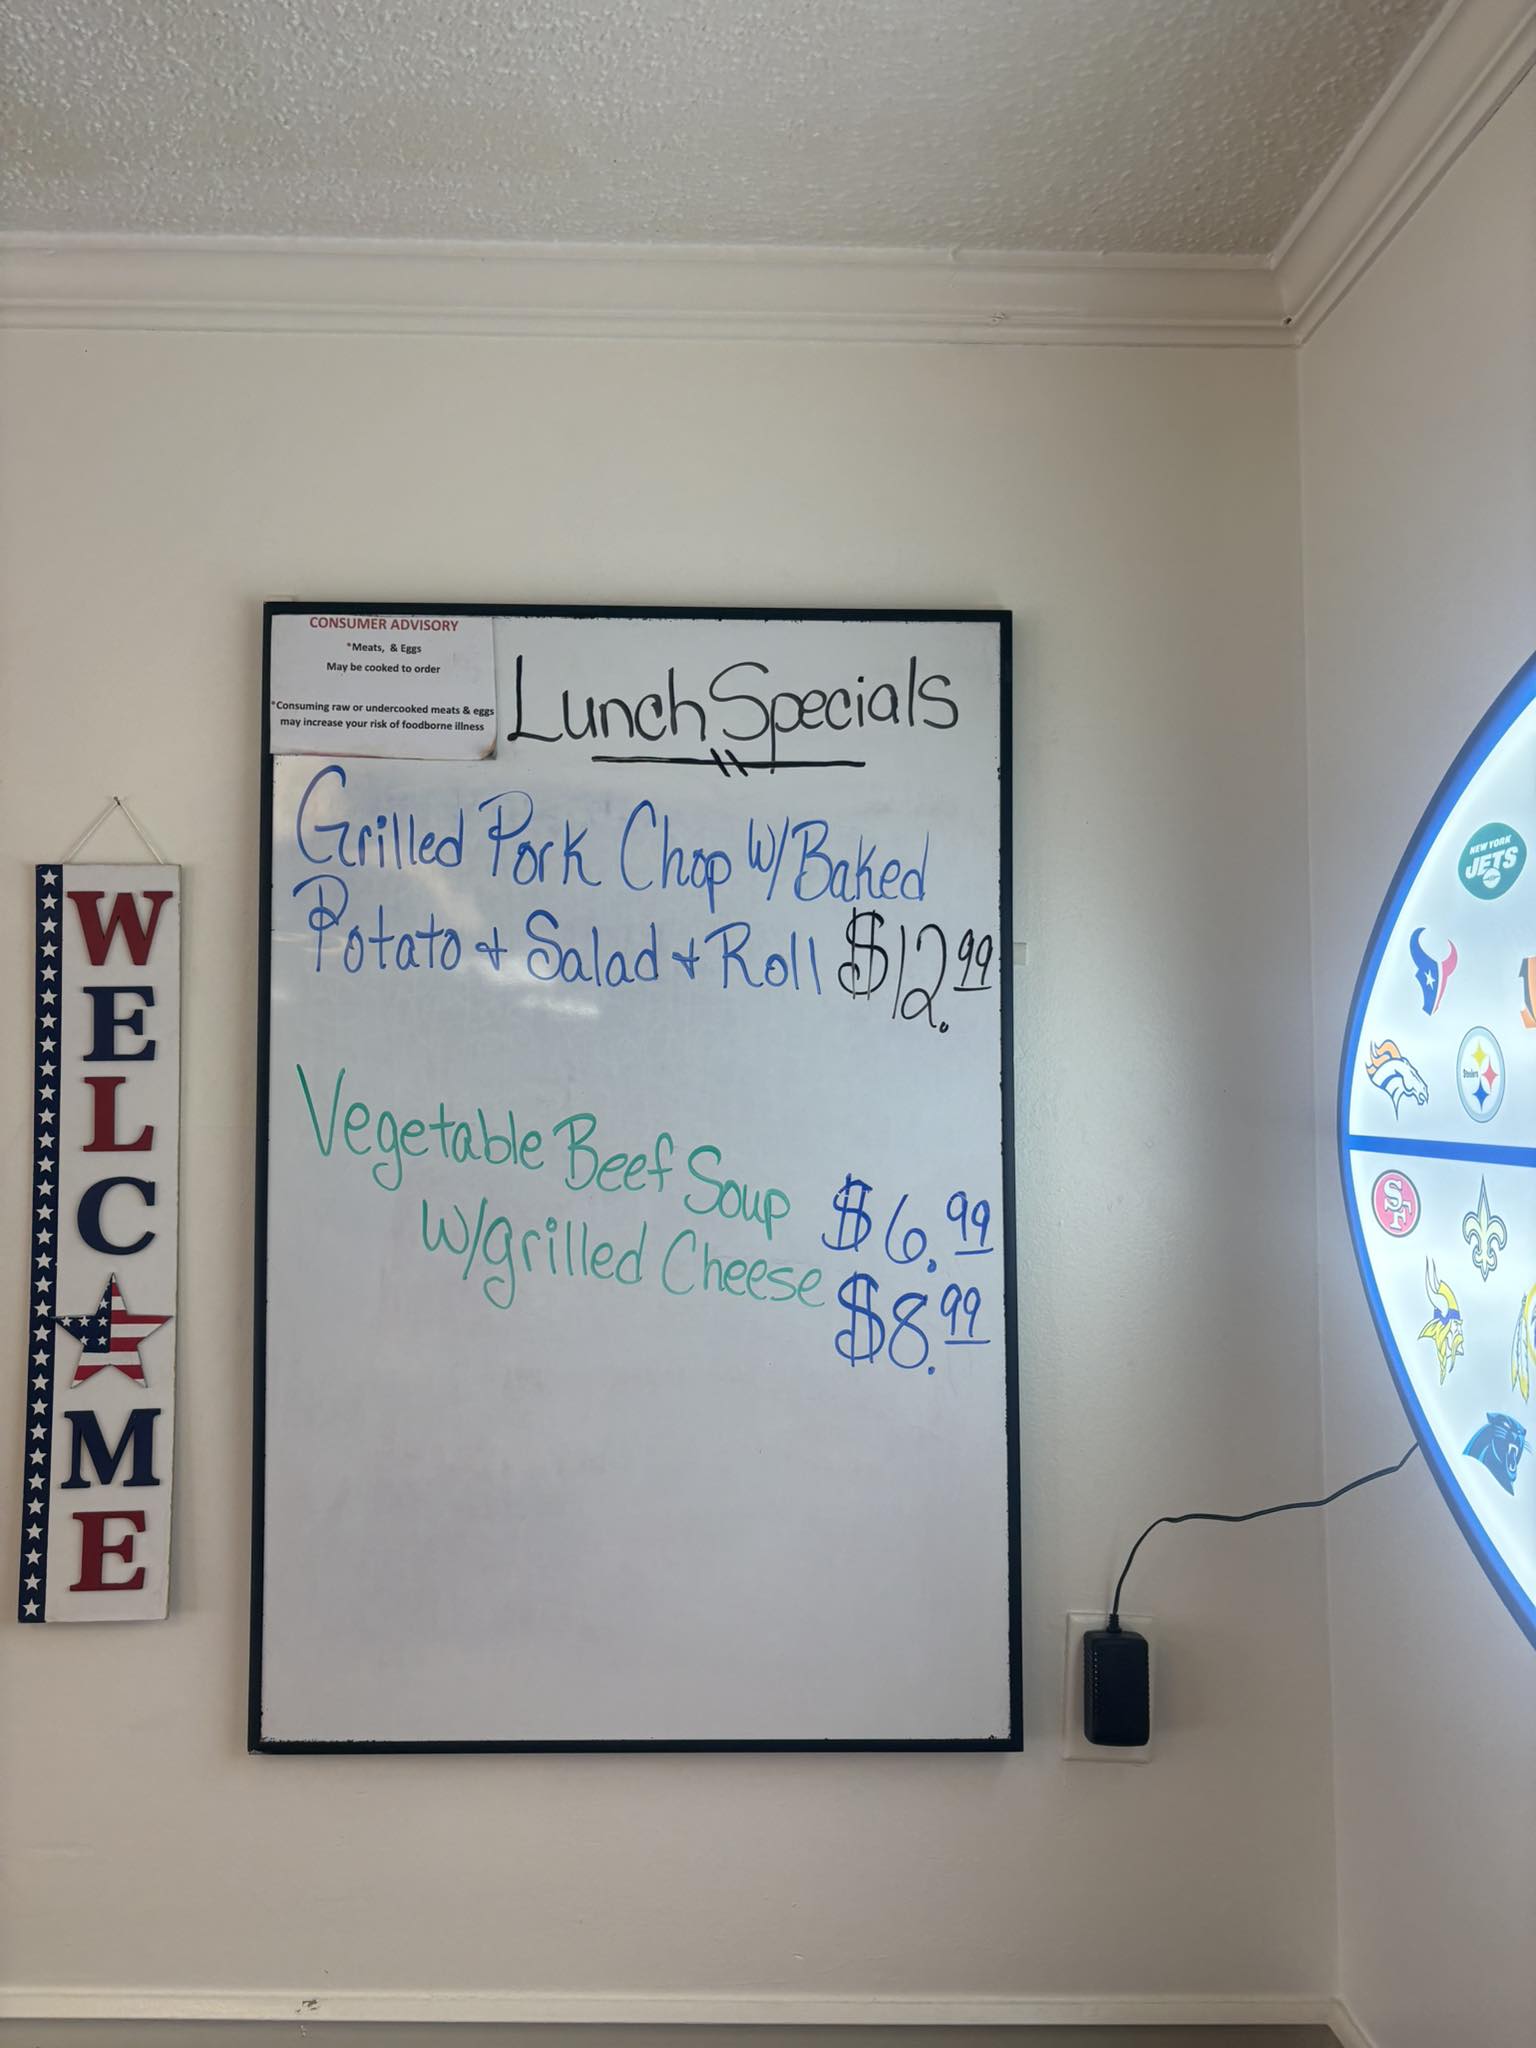 CONSUMER ADVISORY
*Meats, & Eggs
May be cooked to order
*Consuming raw or undercooked meats & eggs
may increase your risk of foodborne illness
Lunch Specials
Grilled Pork Chop W/Baked
Potato + Salad + Roll $12.99
Vegetable Beef Soup $6.99
W/grilled Cheese $8.99
WELC
ME
NEW YORK
JETS
Steelers
SF